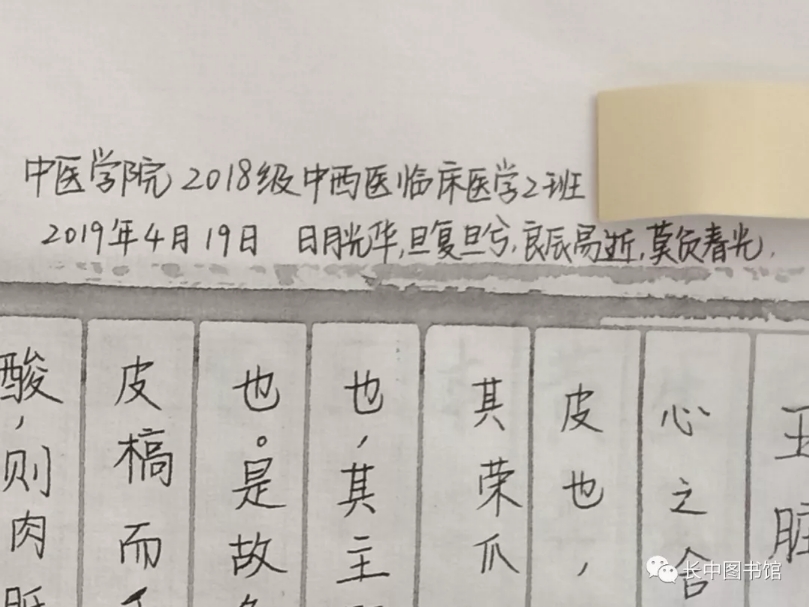 中医学院 2018级中西医临床医学2班
2019年4月19日 日月光华,旦复旦兮,良辰易逝,莫负春光.
五脏
心之合
皮也,
其荣爪
也,其主
也。是故
皮槁而
酸,则肉
长中图书馆